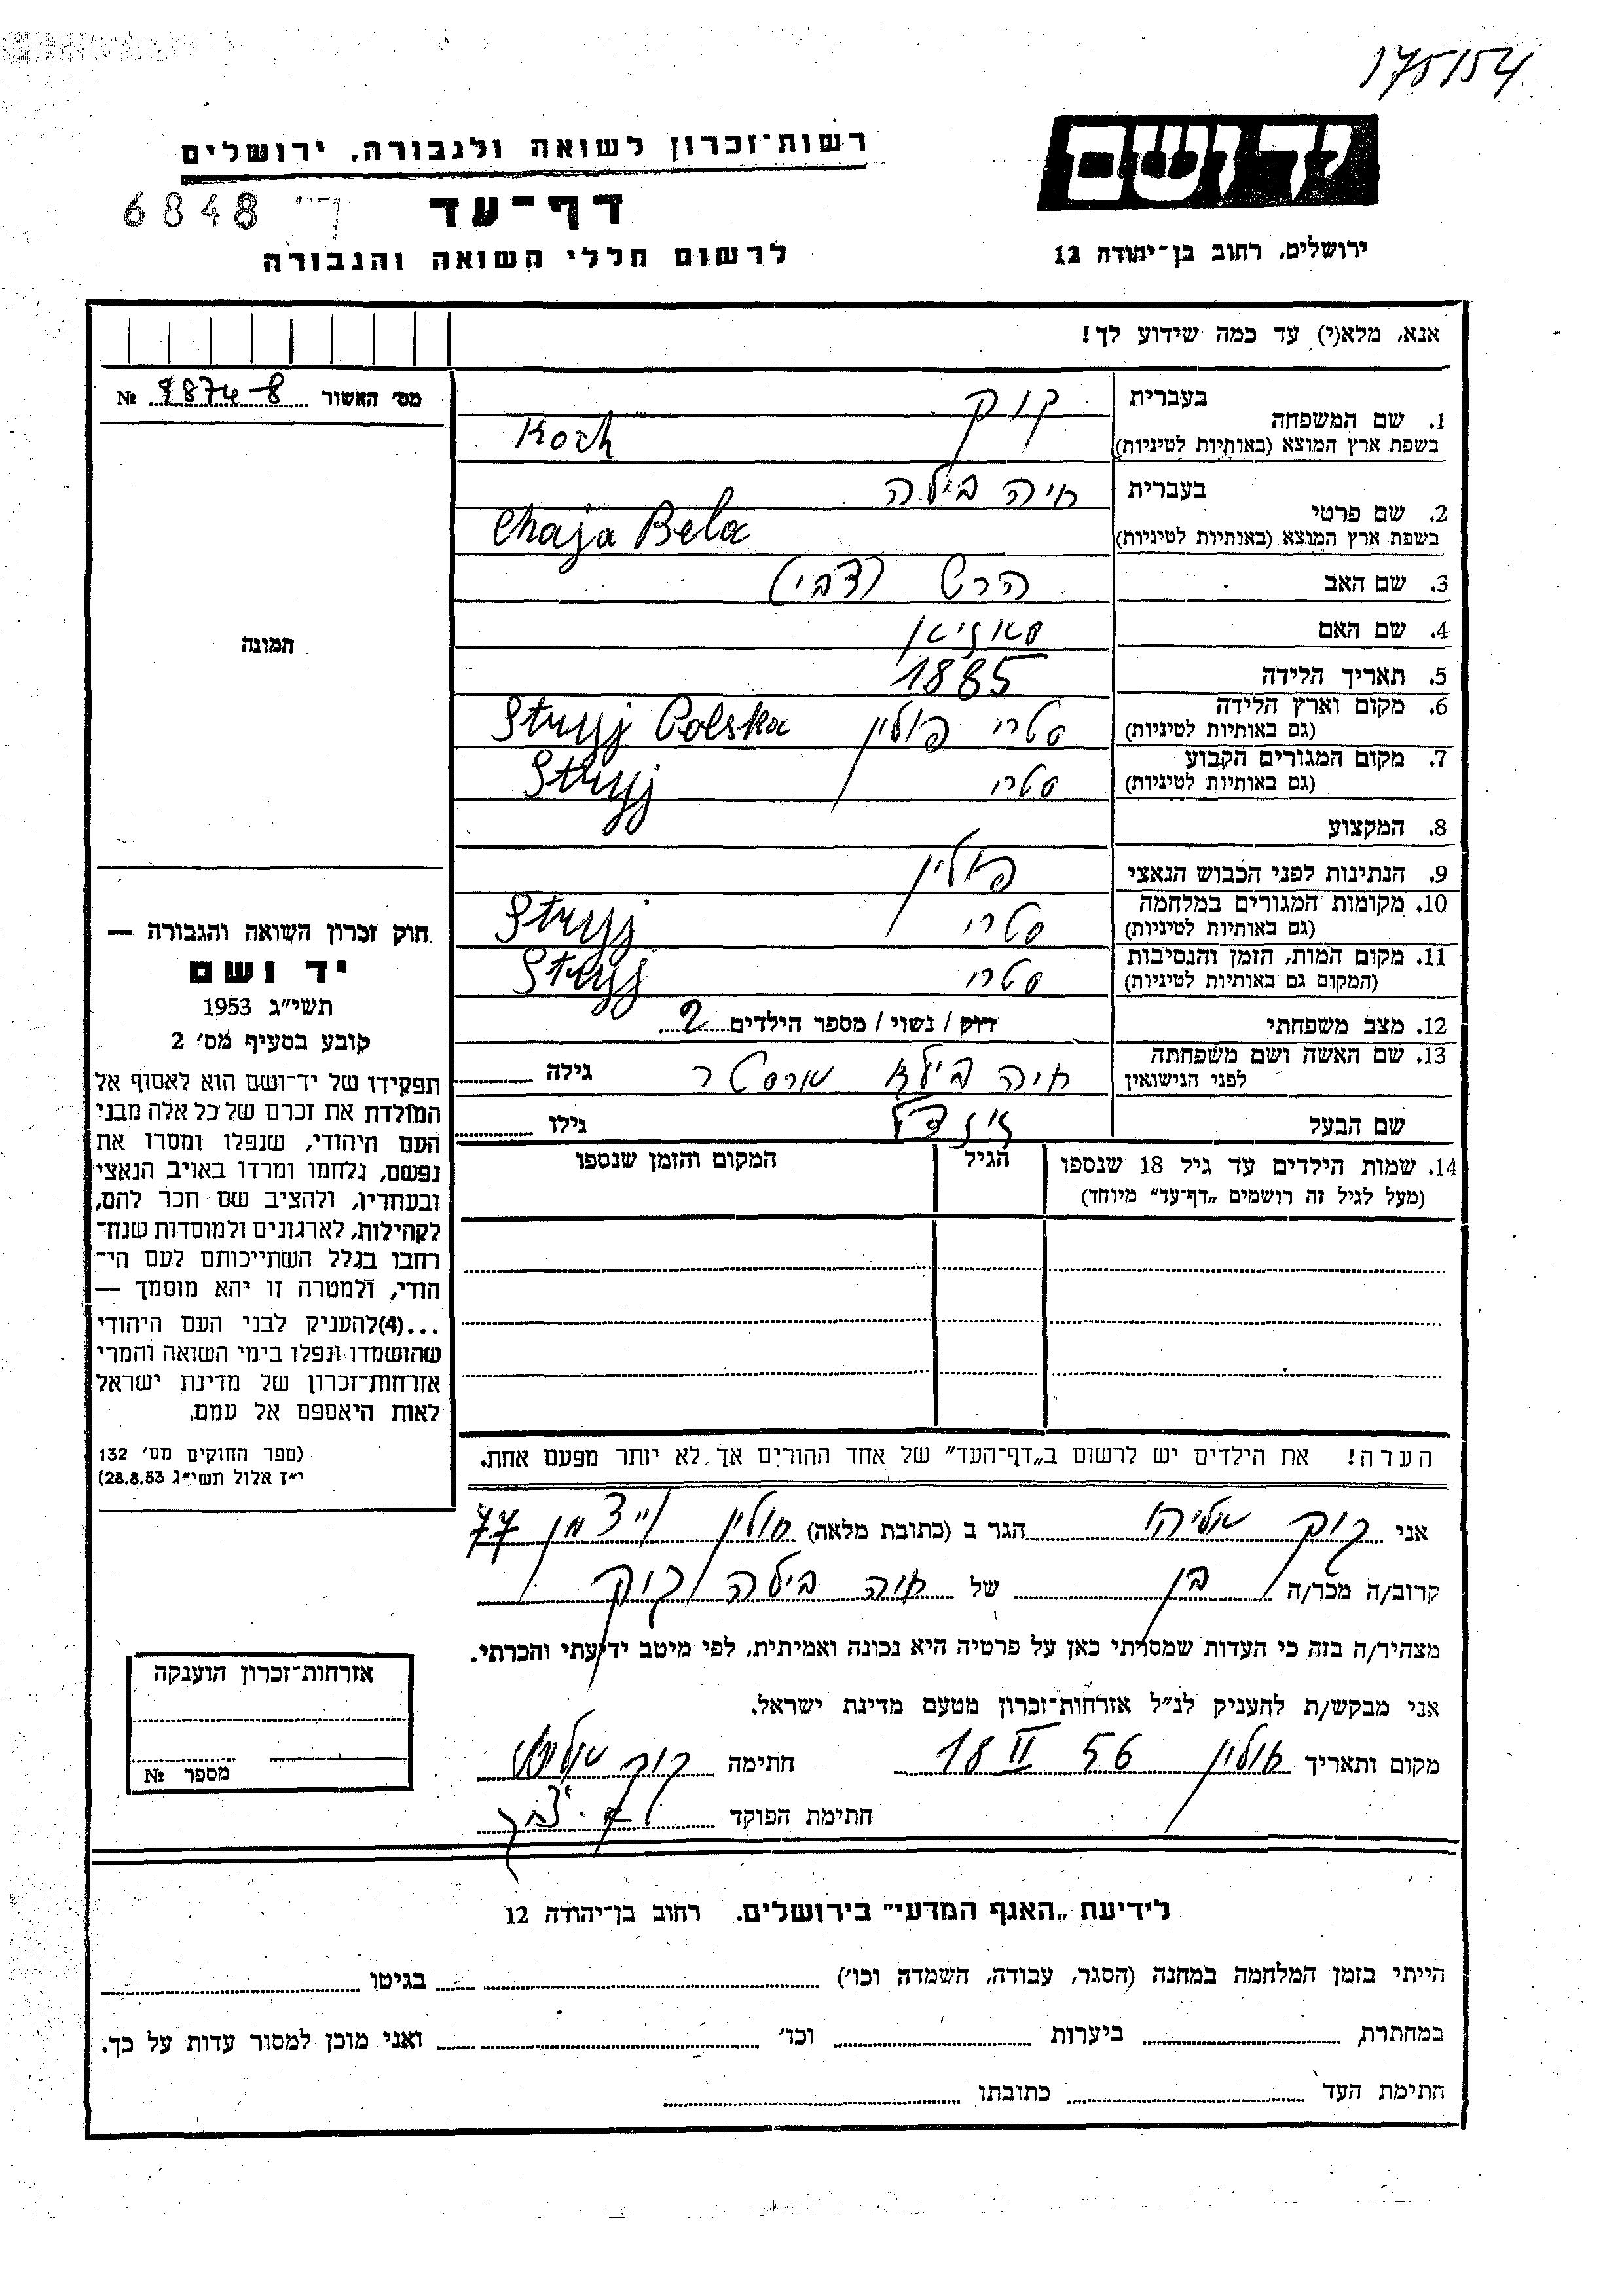 175154
יד ושם
רשות־זכרון לשואה ולגבורה, ירושלים
דף־עד
ד" 6848
ירושלים, רחוב בן־יהודה 12
לרשום חללי השואה והגבורה
אנא, מלא(י) עד כמה שידוע לך!
מס׳ האשור № 9874-8
תמונה
1. שם המשפחה
בעברית קוק
בשפת ארץ המוצא (באותיות לטיניות) Koch
2. שם פרטי
בעברית חיה בילה
בשפת ארץ המוצא (באותיות לטיניות) Chaja Bela
3. שם האב הרש
4. שם האם
5. תאריך הלידה 1885
6. מקום וארץ הלידה סטרי פולין Stryj Polska
(גם באותיות לטיניות)
7. מקום המגורים הקבוע סטרי Stryj
(גם באותיות לטיניות)
8. המקצוע
9. הנתינות לפני הכבוש הנאצי פולין
10. מקומות המגורים במלחמה סטרי Stryj
(גם באותיות לטיניות)
11. מקום המות, הזמן והנסיבות סטרי Stryj
(המקום גם באותיות לטיניות)
12. מצב משפחתי רווק / נשוי / מספר הילדים 2
13. שם האשה ושם משפחתה חיה בילא גילה
לפני הנישואין
שם הבעל גילו
14. שמות הילדים עד גיל 18 שנספו הגיל המקום והזמן שנספו
(מעל לגיל זה רושמים „דף־עד" מיוחד)
הערה! את הילדים יש לרשום ב„דף־העד" של אחד ההורים אך לא יותר מפעם אחת.
חוק זכרון השואה והגבורה —
יד ושם
תשי״ג 1953
קובע בסעיף מס׳ 2
תפקידו של יד־ושם הוא לאסוף אל
המולדת את זכרם של כל אלה מבני
העם היהודי, שנפלו ומסרו את
נפשם, נלחמו ומרדו באויב הנאצי
ובעוזריו, ולהציב שם וזכר להם,
לקהילות, לארגונים ולמוסדות שנח־
רבו בגלל השתייכותם לעם הי־
הודי, ולמטרה זו יהא מוסמך —
...(4) להעניק לבני העם היהודי
שהושמדו ונפלו בימי השואה והמרי
אזרחות־זכרון של מדינת ישראל
לאות היאספם אל עמם.
(ספר החוקים מס׳ 132
י״ד אלול תשי״ג 28.8.53)
אני קוק אליהו הגר ב (כתובת מלאה) חולון ויצמן 77
קרוב/ה מכר/ה בן של חיה בילה קוק
מצהיר/ה בזה כי העדות שמסרתי כאן על פרטיה היא נכונה ואמיתית, לפי מיטב ידיעתי והכרתי.
אני מבקש/ת להעניק לנ״ל אזרחות־זכרון מטעם מדינת ישראל.
מקום ותאריך חולון 18 II 56 חתימה קוק אליהו
חתימת הפוקד
אזרחות־זכרון הוענקה
מספר №
לידיעת „האגף המדעי" בירושלים, רחוב בן־יהודה 12
הייתי בזמן המלחמה במחנה (הסגר, עבודה, השמדה וכו׳) בגיטו
במחתרת ביערות וכו׳ ואני מוכן למסור עדות על כך.
חתימת העד כתובתו